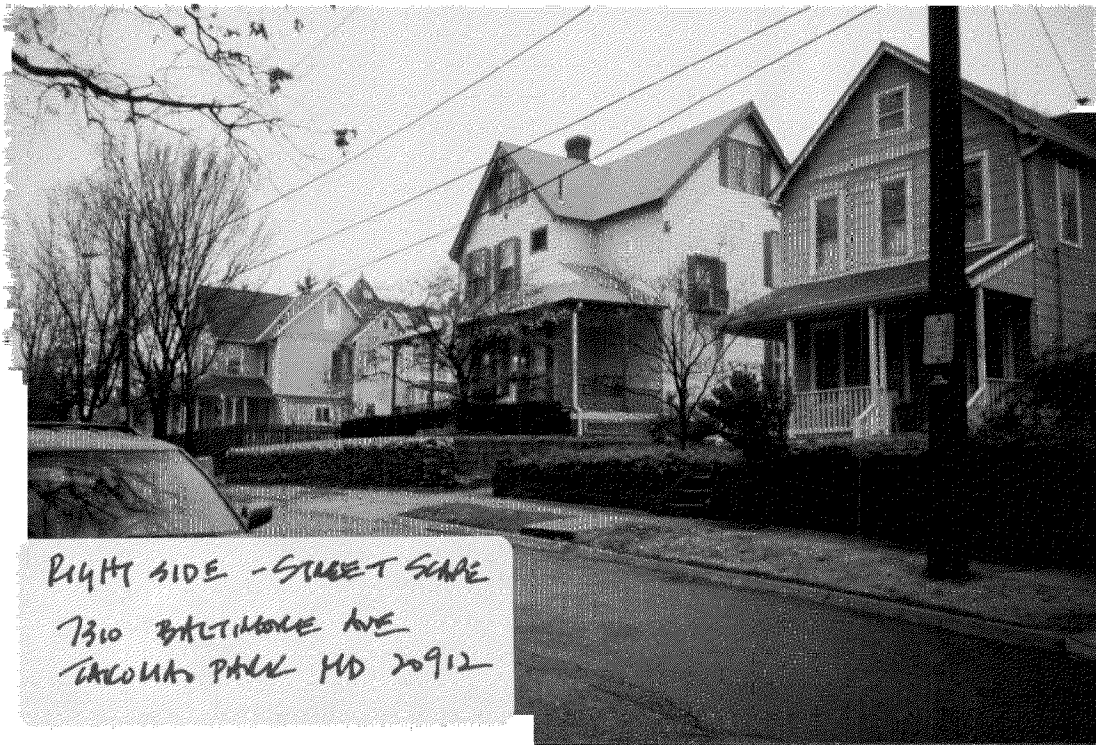 RIGHT SIDE - STREET SCAPE
7310 BALTIMORE AVE
TAKOMA PARK MD 20912